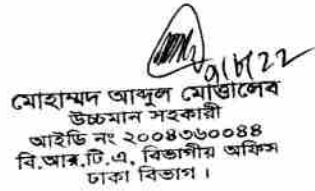 ৭/৮/22
মোহাম্মদ আব্দুল মোত্তালেব
উচ্চমান সহকারী
আইডি নং ২০০৪৩৬০০৪৪
বি.আর.টি.এ, বিভাগীয় অফিস
ঢাকা বিভাগ।